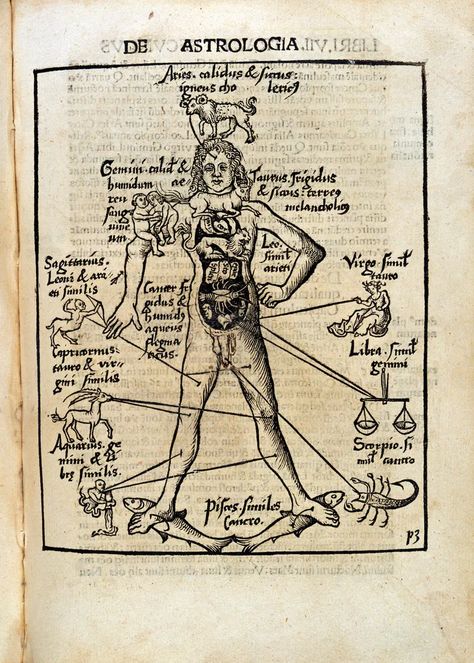 DE ASTROLOGIA
Aries. calidus & siccus.
igneus cho lericꝰ
Gemini. calidꝰ &
humidum ae
reu
sang
uine
um
Taurus. frigidus
& siccus: terreꝰ
melancholicꝰ
Leo.
simil
arieti
Sagittarius.
Leoni & ari
eti similis
Cancer fri
gidus &
humidꝰ
aqueus
flegma
ticus.
Virgo. simil
tauro
Capricornus:
tauro & vir
gini similis
Libra. simil
gemini
Aquarius. ge
mini & li
brę similis.
Scorpio. si
mil cancro
Pisces. similes
Cancro.
p3